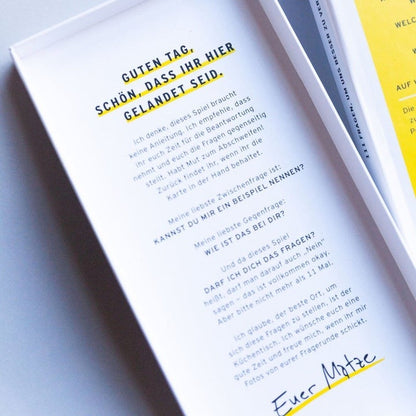 GUTEN TAG,
SCHÖN, DASS IHR HIER
GELANDET SEID.
Ich denke, dieses Spiel braucht
keine Anleitung. Ich empfehle, dass
ihr euch Zeit für die Beantwortung
nehmt und euch die Fragen gegenseitig
stellt. Habt Mut zum Abschweifen!
Zurück findet ihr, wenn ihr die
Karte in der Hand behaltet.
Meine liebste Zwischenfrage ist:
KANNST DU MIR EIN BEISPIEL NENNEN?
Meine liebste Gegenfrage:
WIE IST DAS BEI DIR?
Und da dieses Spiel
DARF ICH DICH DAS FRAGEN?
heißt, darf man darauf auch „Nein"
sagen – das ist vollkommen okay.
Aber bitte nicht mehr als 11 Mal.
Ich glaube, der beste Ort, um
sich diese Fragen zu stellen, ist der
Küchentisch. Ich wünsche euch eine
gute Zeit und freue mich, wenn ihr mir
Fotos von eurer Fragerunde schickt.
Euer Motze
FRAGEN, UM UND BESSER ZU
WELC
AUF
Die